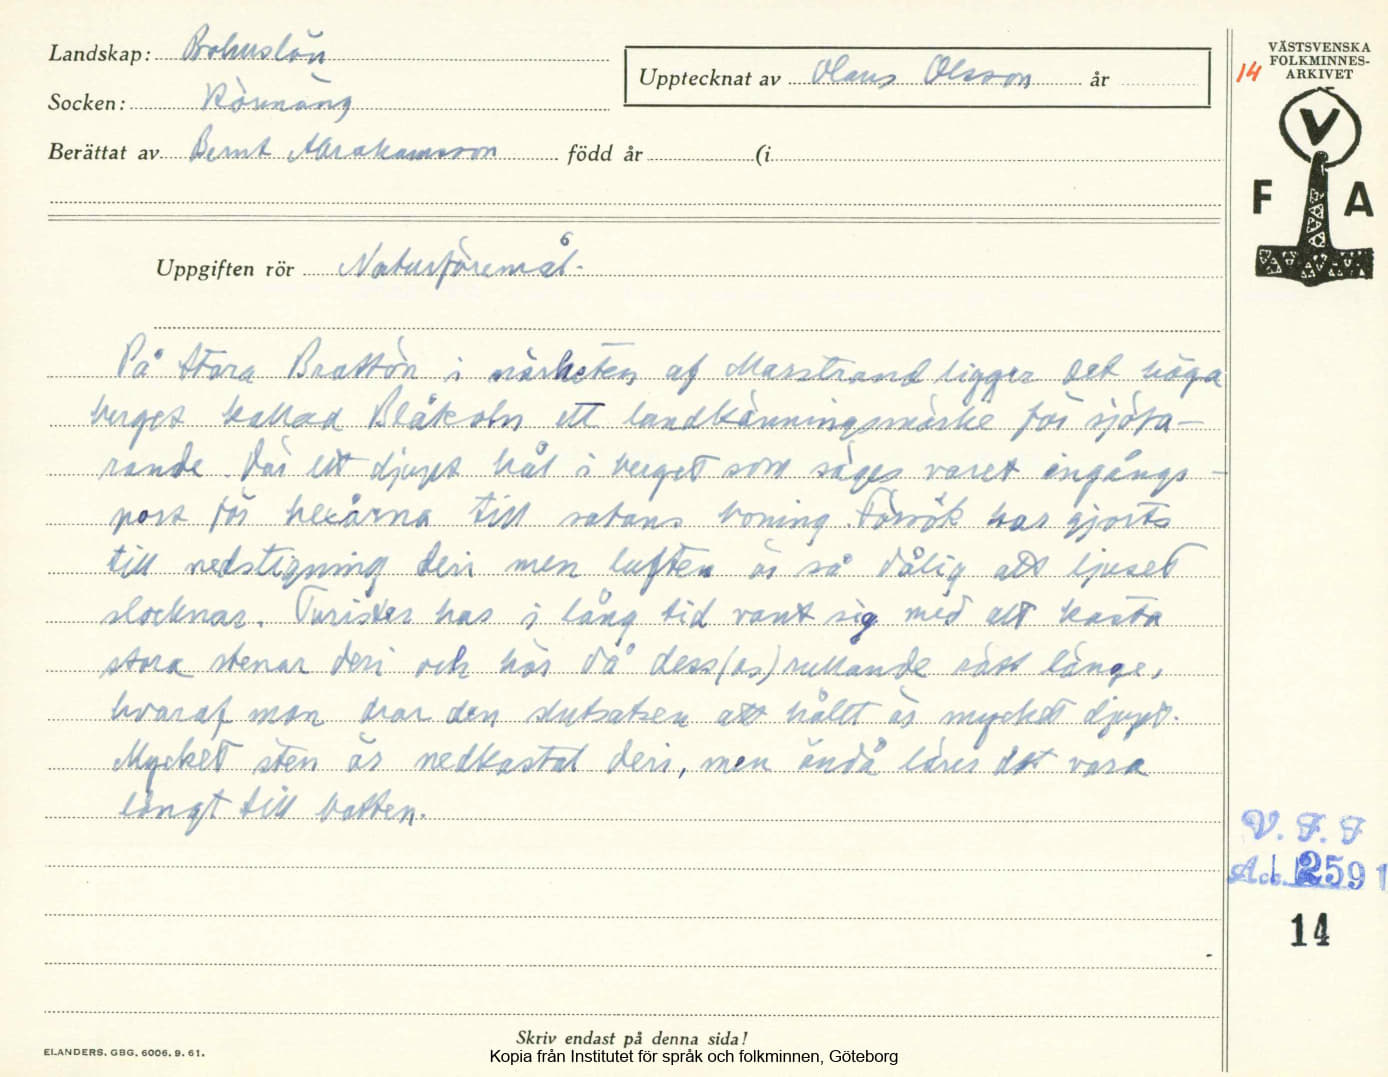 Landskap: Bohuslän
Socken: Rönnäng
Berättat av Bernt Abrahamsson född år (i
Upptecknat av Olaus Olsson år
14
VÄSTSVENSKA
FOLKMINNES-
ARKIVET
V
F A
Uppgiften rör Naturföremål.
På Stora Brattön i närheten af Marstrand ligger det höga
berget kallad Blåkoln ett landkänningsmärke för sjöfa-
rande. Där ett djupt hål i berget som säges varet ingångs-
port för hexorna till satans boning. Försök har gjorts
till nedstigning deri men luften är så dålig att ljuset
slocknar. Turister har i lång tid vant sig med att kasta
stora stenar deri och hör då dess(as) rullande rätt länge,
hvaraf man drar den slutsatsen att hålet är mycket djupt.
Mycket sten är nedkastat deri, men ändå lärer det vara
långt till botten.
V. F. F
Acc. 2591
14
Skriv endast på denna sida!
ELANDERS, GBG, 6006. 9. 61.
Kopia från Institutet för språk och folkminnen, Göteborg